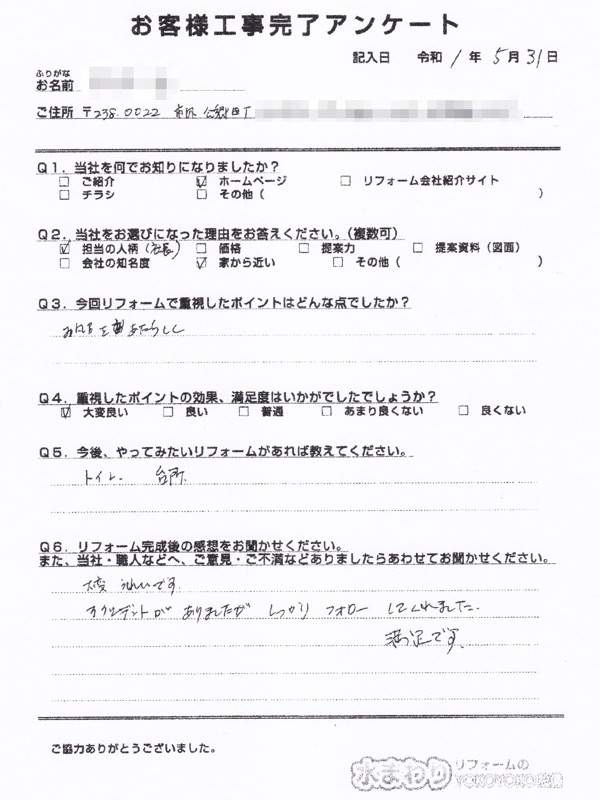 お客様工事完了アンケート
記入日 令和 1 年 5 月 31 日
ふりがな
お名前
ご住所 〒238-0022 公郷町
Q1. 当社を何でお知りになりましたか?
□ ご紹介 ☑ ホームページ □ リフォーム会社紹介サイト
□ チラシ □ その他 ( )
Q2. 当社をお選びになった理由をお答えください。(複数可)
☑ 担当の人柄 (社長) □ 価格 □ 提案力 □ 提案資料 (図面)
□ 会社の知名度 ☑ 家から近い □ その他 ( )
Q3. 今回リフォームで重視したポイントはどんな点でしたか?
あたらしく
Q4. 重視したポイントの効果、満足度はいかがでしたでしょうか?
☑ 大変良い □ 良い □ 普通 □ あまり良くない □ 良くない
Q5. 今後、やってみたいリフォームがあれば教えてください。
トイレ. 台所.
Q6. リフォーム完成後の感想をお聞かせください。
また、当社・職人などへ、ご意見・ご不満などありましたらあわせてお聞かせください。
大変 うれしいです
アクシデントが ありましたが しっかり フォロー してくれました.
満足です.
ご協力ありがとうございました。
水まわり リフォームの
YOKOYOKO